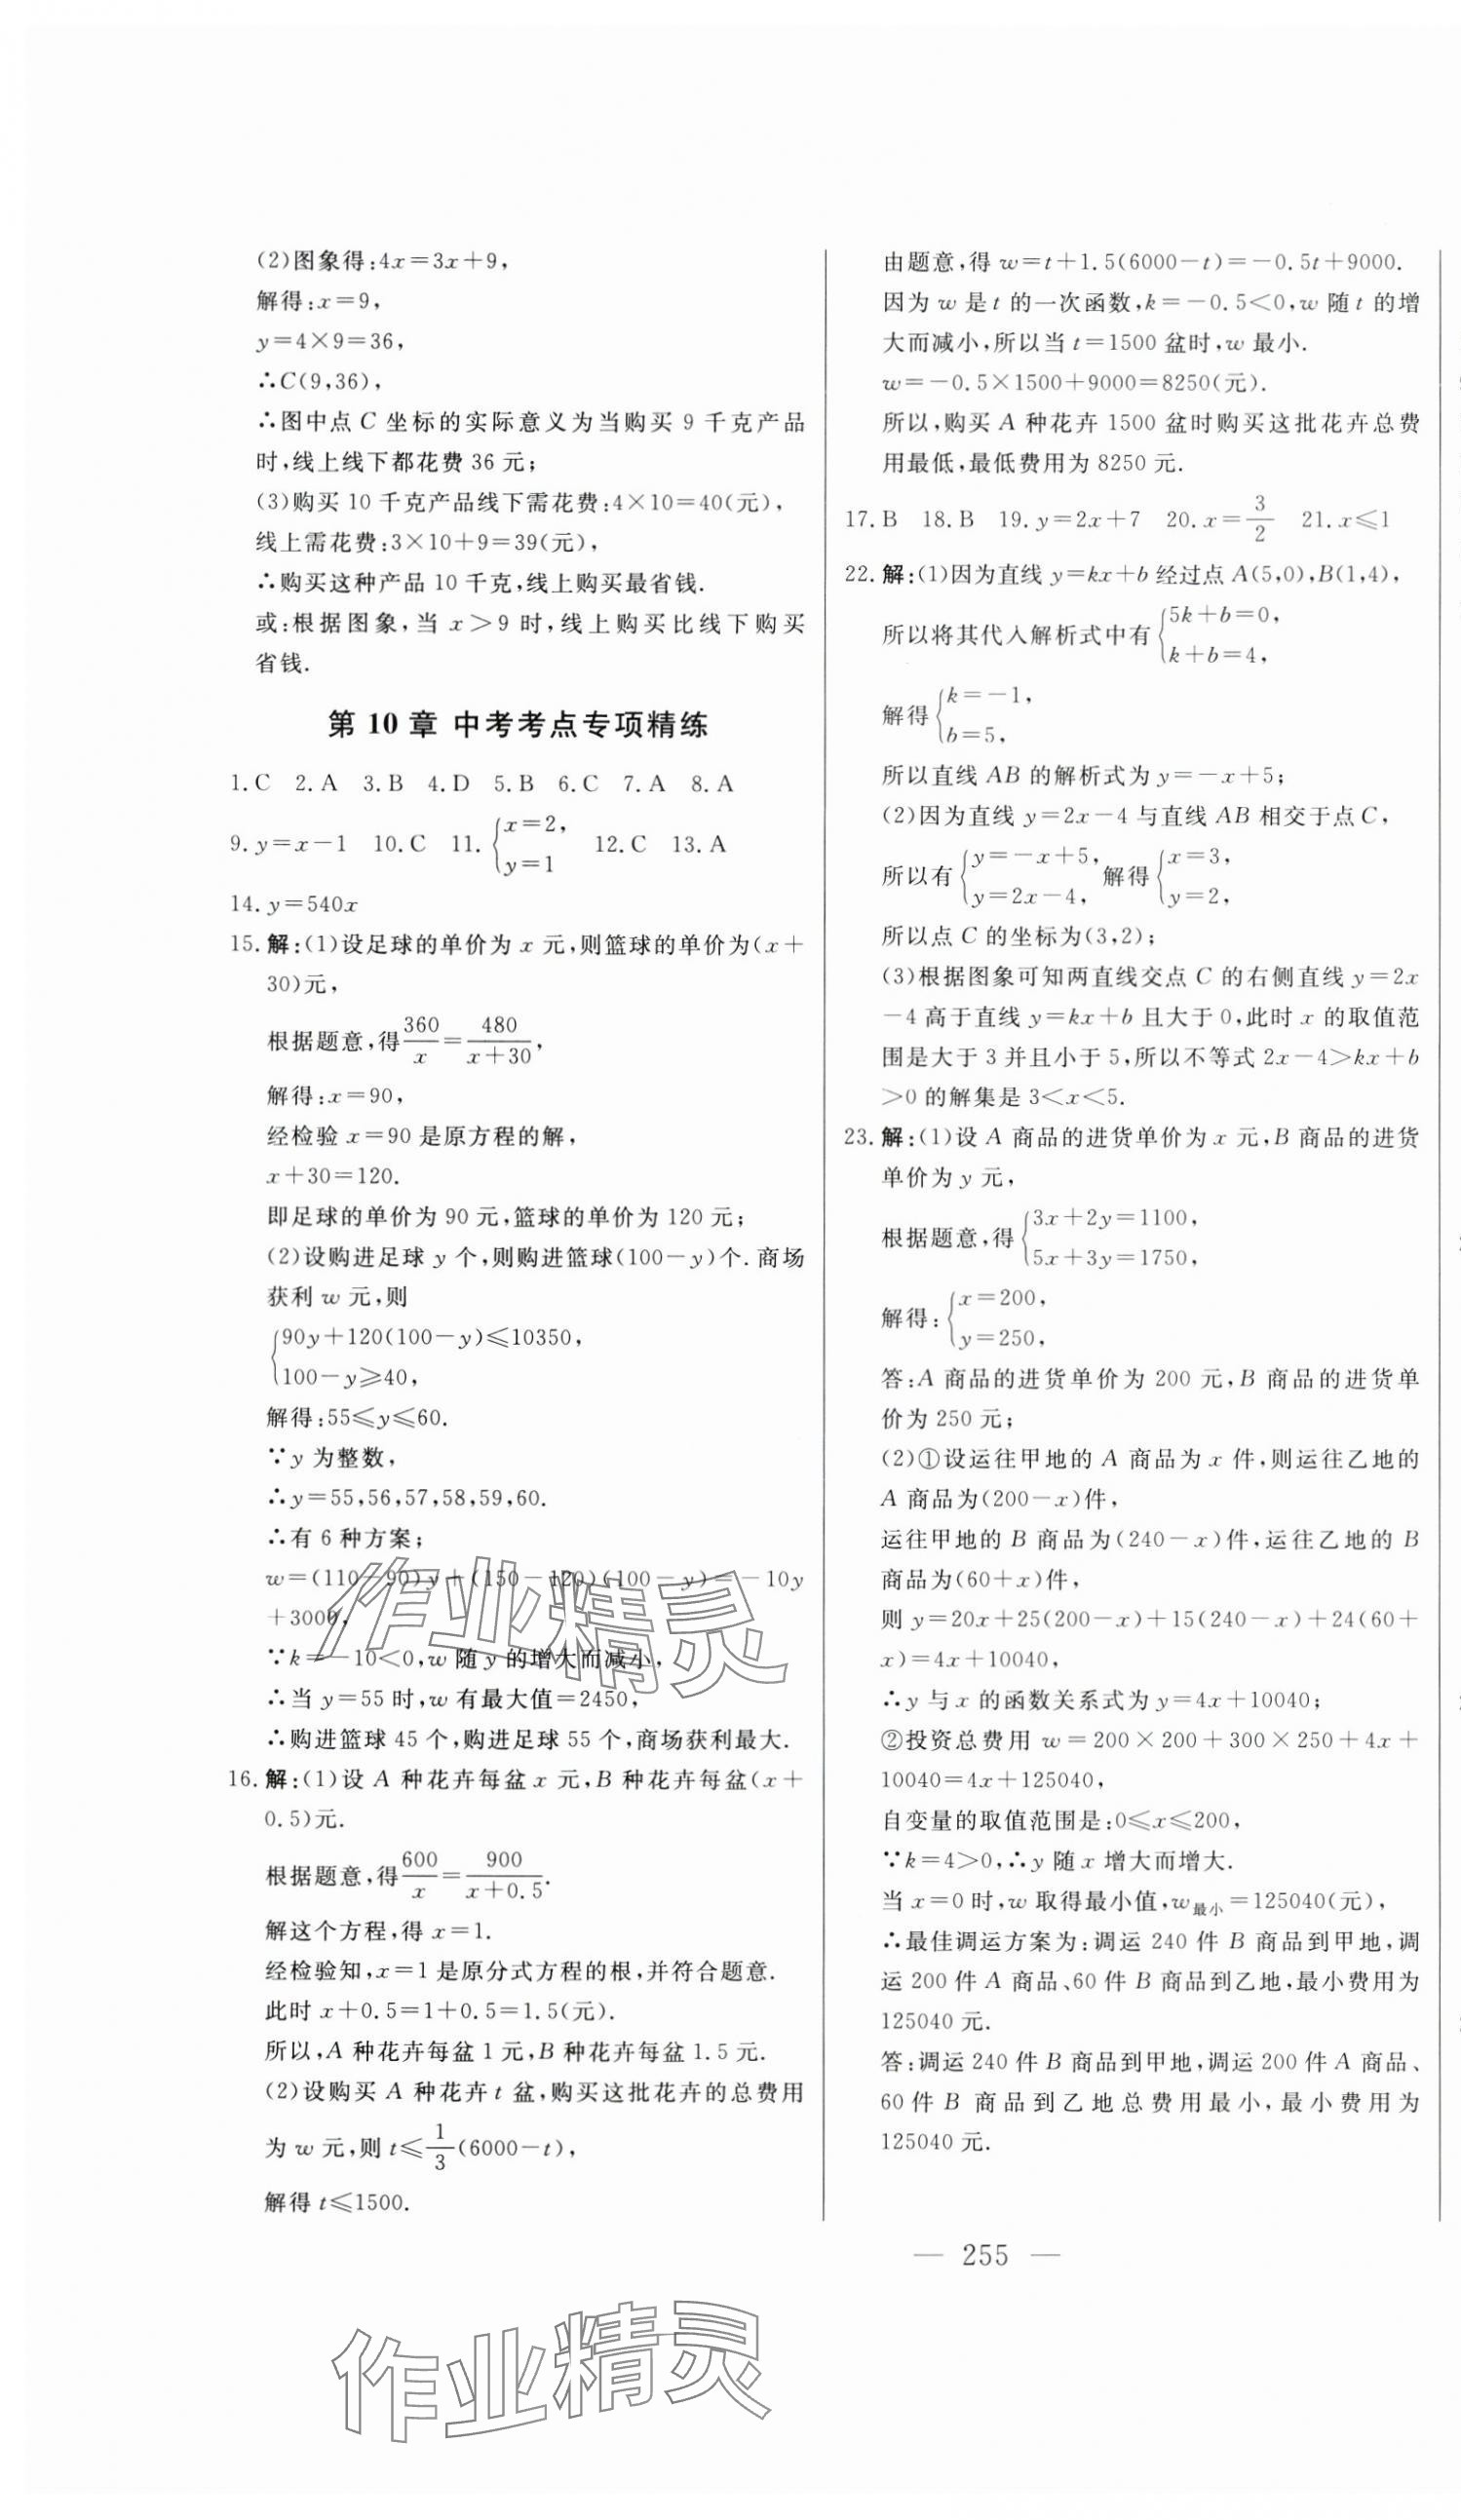 (2)图象得:4x=3x+9,
解得:x=9,
y=4×9=36,
∴C(9,36),
∴图中点 C 坐标的实际意义为当购买 9 千克产品
时,线上线下都花费 36 元;
(3)购买 10 千克产品线下需花费:4×10=40(元),
线上需花费:3×10+9=39(元),
∴购买这种产品 10 千克,线上购买最省钱.
或:根据图象,当 x>9 时,线上购买比线下购买
省钱.
第 10 章 中考考点专项精练
1.C 2.A 3.B 4.D 5.B 6.C 7.A 8.A
9.y=x-1 10.C 11.{x=2, y=1 12.C 13.A
14.y=540x
15.解:(1)设足球的单价为 x 元,则篮球的单价为(x+
30)元,
根据题意,得360/x=480/(x+30),
解得:x=90,
经检验 x=90 是原方程的解,
x+30=120.
即足球的单价为 90 元,篮球的单价为 120 元;
(2)设购进足球 y 个,则购进篮球(100-y)个.商场
获利 w 元,则
{90y+120(100-y)≤10350,
100-y≥40,
解得:55≤y≤60.
∵y 为整数,
∴y=55,56,57,58,59,60.
∴有 6 种方案;
w=(110-90)y+(150-120)(100-y)=-10y
+3000,
∵k=-10<0,w 随 y 的增大而减小,
∴当 y=55 时,w 有最大值=2450,
∴购进篮球 45 个,购进足球 55 个,商场获利最大.
16.解:(1)设 A 种花卉每盆 x 元,B 种花卉每盆(x+
0.5)元.
根据题意,得600/x=900/(x+0.5).
解这个方程,得 x=1.
经检验知,x=1 是原分式方程的根,并符合题意.
此时 x+0.5=1+0.5=1.5(元).
所以,A 种花卉每盆 1 元,B 种花卉每盆 1.5 元.
(2)设购买 A 种花卉 t 盆,购买这批花卉的总费用
为 w 元,则 t≤1/3(6000-t),
解得 t≤1500.
由题意,得 w=t+1.5(6000-t)=-0.5t+9000.
因为 w 是 t 的一次函数,k=-0.5<0,w 随 t 的增
大而减小,所以当 t=1500 盆时,w 最小.
w=-0.5×1500+9000=8250(元).
所以,购买 A 种花卉 1500 盆时购买这批花卉总费
用最低,最低费用为 8250 元.
17.B 18.B 19.y=2x+7 20.x=3/2 21.x≤1
22.解:(1)因为直线 y=kx+b 经过点 A(5,0),B(1,4),
所以将其代入解析式中有{5k+b=0, k+b=4,
解得{k=-1, b=5,
所以直线 AB 的解析式为 y=-x+5;
(2)因为直线 y=2x-4 与直线 AB 相交于点 C,
所以有{y=-x+5, y=2x-4, 解得{x=3, y=2,
所以点 C 的坐标为(3,2);
(3)根据图象可知两直线交点 C 的右侧直线 y=2x
-4 高于直线 y=kx+b 且大于 0,此时 x 的取值范
围是大于 3 并且小于 5,所以不等式 2x-4>kx+b
>0 的解集是 3<x<5.
23.解:(1)设 A 商品的进货单价为 x 元,B 商品的进货
单价为 y 元,
根据题意,得{3x+2y=1100, 5x+3y=1750,
解得:{x=200, y=250,
答:A 商品的进货单价为 200 元,B 商品的进货单
价为 250 元;
(2)①设运往甲地的 A 商品为 x 件,则运往乙地的
A 商品为(200-x)件,
运往甲地的 B 商品为(240-x)件,运往乙地的 B
商品为(60+x)件,
则 y=20x+25(200-x)+15(240-x)+24(60+
x)=4x+10040,
∴y 与 x 的函数关系式为 y=4x+10040;
②投资总费用 w=200×200+300×250+4x+
10040=4x+125040,
自变量的取值范围是:0≤x≤200,
∵k=4>0,∴y 随 x 增大而增大.
当 x=0 时,w 取得最小值,w最小=125040(元),
∴最佳调运方案为:调运 240 件 B 商品到甲地,调
运 200 件 A 商品、60 件 B 商品到乙地,最小费用为
125040 元.
答:调运 240 件 B 商品到甲地,调运 200 件 A 商品、
60 件 B 商品到乙地总费用最小,最小费用为
125040 元.
— 255 —
作业精灵
作业精灵